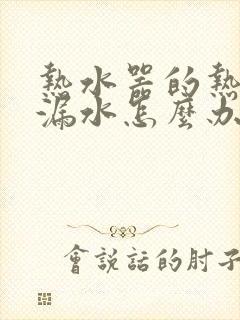 熱水器的熱
漏水怎麼办
會說話的肘子